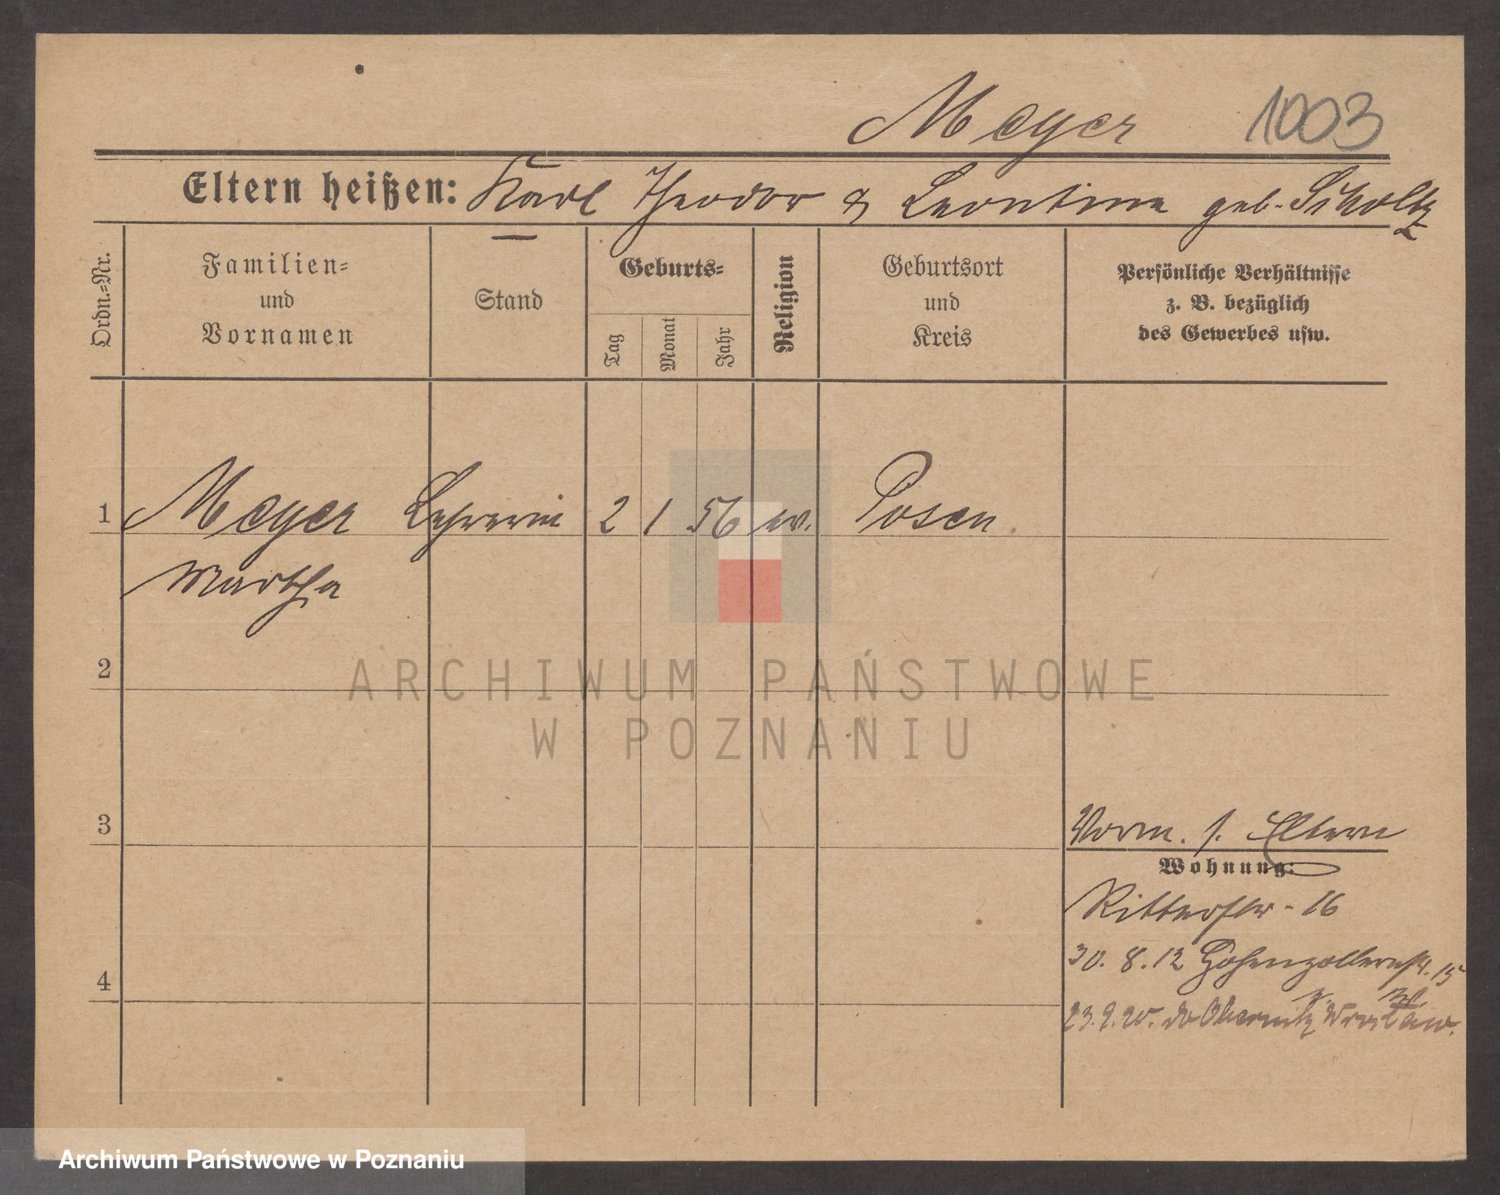 Meyer 1003
Eltern heißen: Karl Theodor & Leontine geb. Scholtz
Ordn.=Nr.
Familien=
und
Vornamen
Stand
Geburts=
Tag
Monat
Jahr
Religion
Geburtsort
und
Kreis
Persönliche Verhältnisse
z. B. bezüglich
des Gewerbes usw.
1 Meyer Lehrerin 2 1 56 ev. Posen
Martha
2
ARCHIWUM PAŃSTWOWE
W POZNANIU
3
Vorm. s. Eltern
Wohnung:
Ritterstr. 16
30. 8. 12 Hohenzollernstr. 15
4
23. 9. 20. do Obernitz
Archiwum Państwowe w Poznaniu